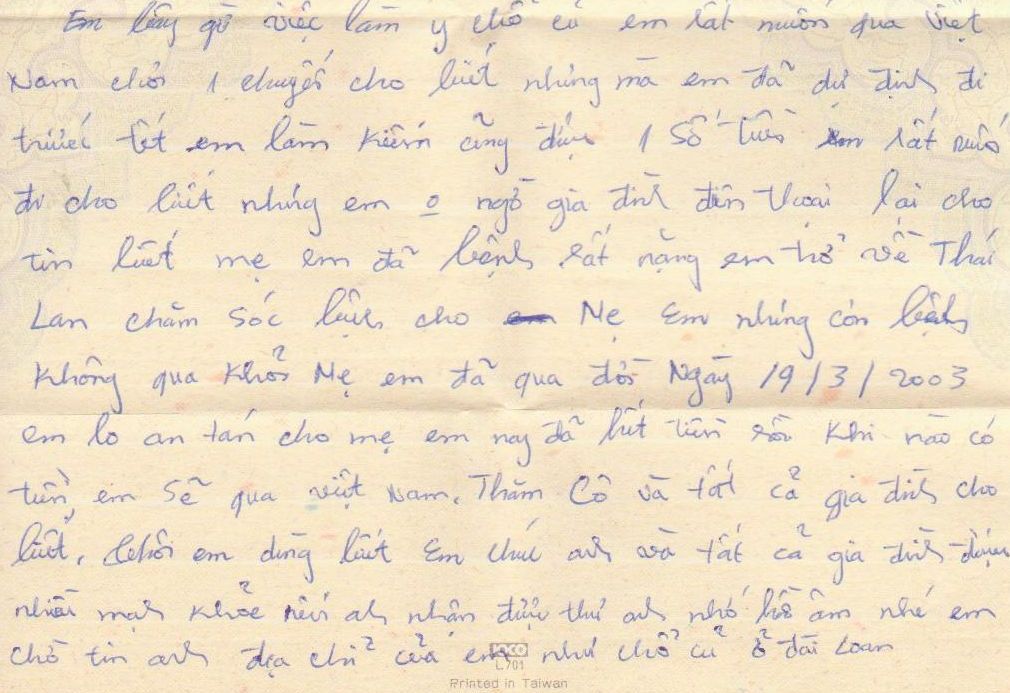 Em bây giờ việc làm y chỗ cũ em rất muốn qua Việt
Nam chơi 1 chuyến cho biết nhưng mà em đã dự định đi
trước tết em làm kiếm cũng được 1 số tiền em rất muốn
đi cho biết nhưng em o ngờ gia đình điện thoại lại cho
tin biết mẹ em đã bệnh rất nặng em trở về Thái
Lan chăm sóc bệnh cho Mẹ Em nhưng còn bệnh
không qua khỏi Mẹ em đã qua đời Ngày 19/3/2003
em lo an tán cho mẹ em nay đã hết tiền rồi khi nào có
tiền, em sẽ qua việt Nam. Thăm Cô và tất cả gia đình cho
biết. thôi em dừng bút Em chúc anh và tất cả gia đình được
nhiều mạnh khỏe nếu anh nhận được thư anh nhớ hồi âm nhé em
chờ tin anh địa chỉ của em như chỗ cũ ở đài Loan
L.701
Printed in Taiwan